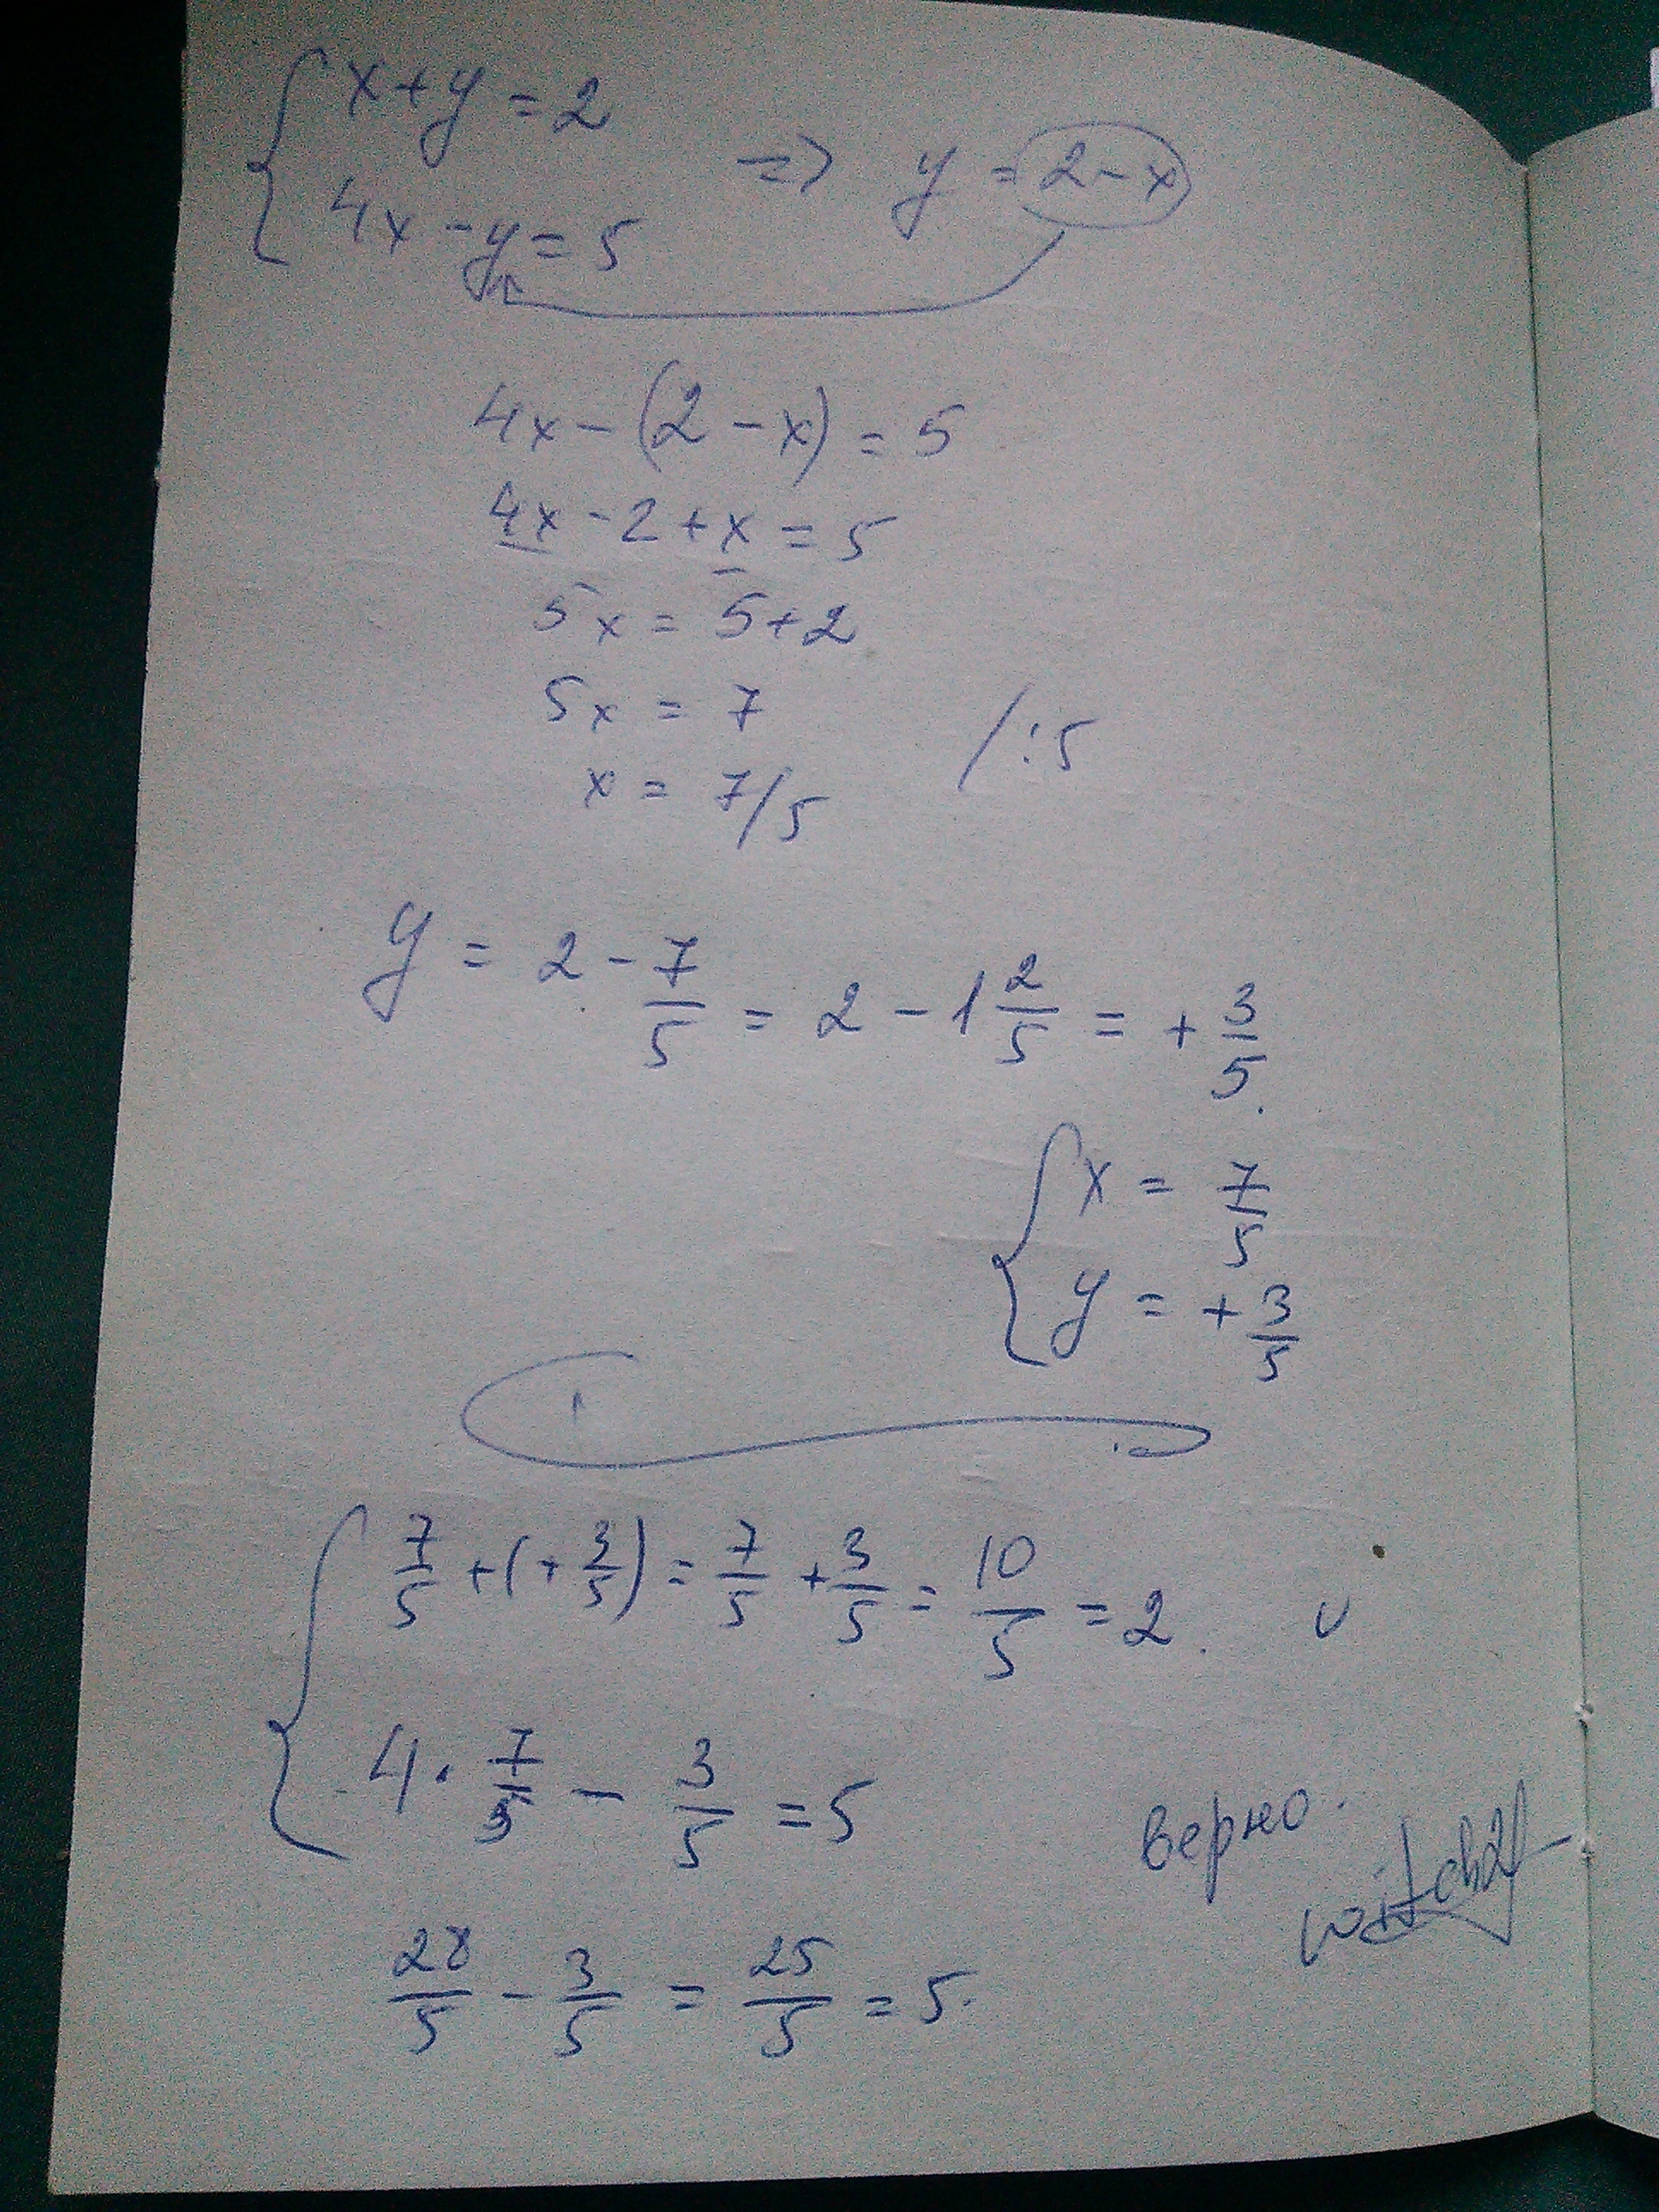 { x + y = 2
4x - y = 5
=> y = 2 - x
4x - (2 - x) = 5
4x - 2 + x = 5
5x = 5 + 2
5x = 7 /:5
x = 7/5
y = 2 - 7/5 = 2 - 1 2/5 = + 3/5.
{ x = 7/5
y = + 3/5
{ 7/5 + (+ 3/5) = 7/5 + 3/5 = 10/5 = 2. v
4 · 7/5 - 3/5 = 5
верно.
28/5 - 3/5 = 25/5 = 5.